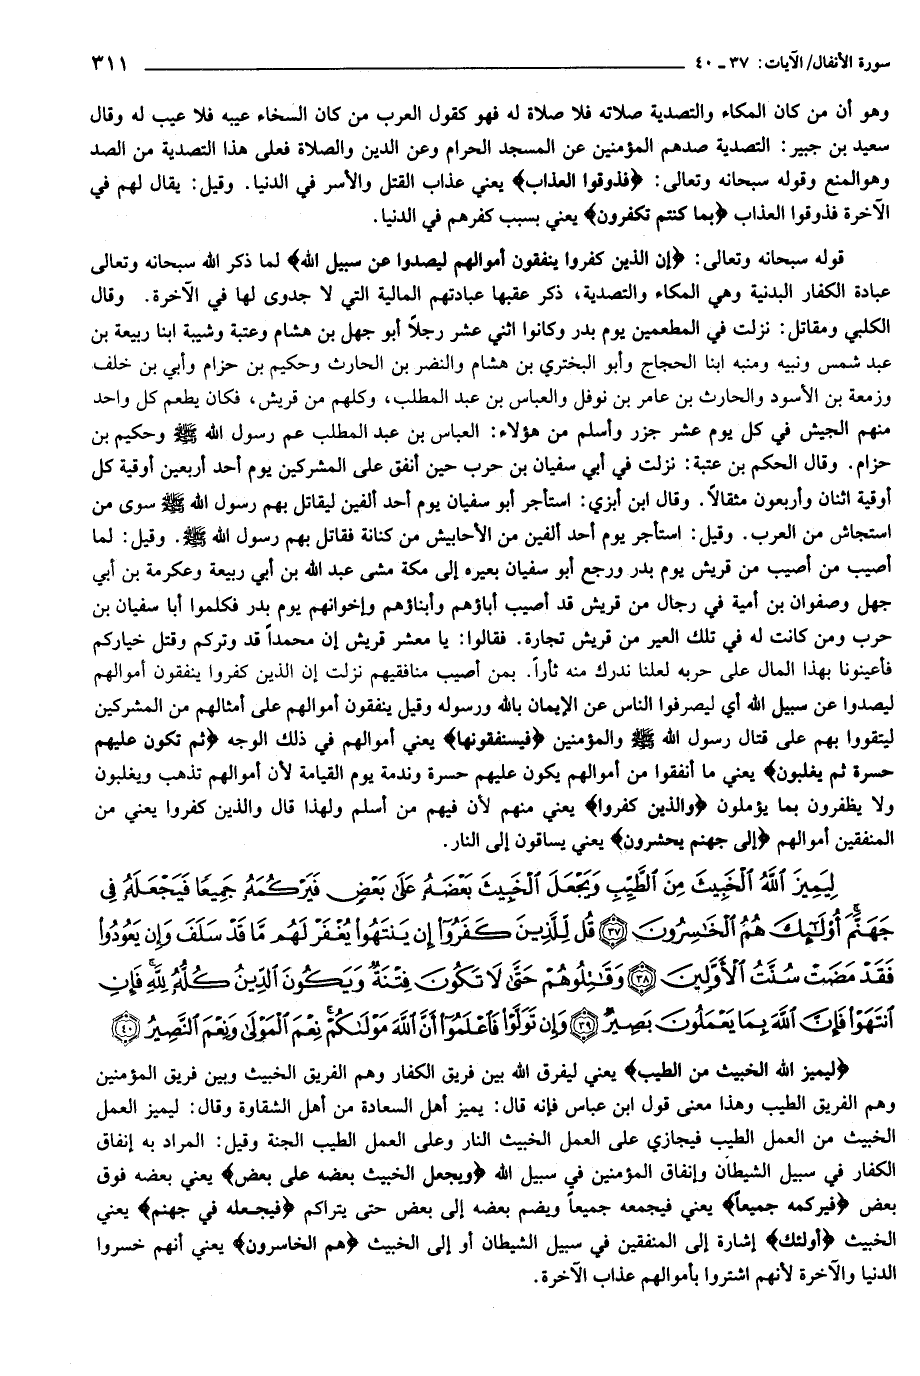 سورة الأنفال/ الآيات: ٣٧ ـ ٤٠ ٣١١
وهو أن من كان المكاء والتصدية صلاته فلا صلاة له فهو كقول العرب من كان السخاء عيبه فلا عيب له وقال
سعيد بن جبير: التصدية صدهم المؤمنين عن المسجد الحرام وعن الدين والصلاة فعلى هذا التصدية من الصد
وهوالمنع وقوله سبحانه وتعالى: ﴿فذوقوا العذاب﴾ يعني عذاب القتل والأسر في الدنيا. وقيل: يقال لهم في
الآخرة فذوقوا العذاب ﴿بما كنتم تكفرون﴾ يعني بسبب كفرهم في الدنيا.
قوله سبحانه وتعالى: ﴿إن الذين كفروا ينفقون أموالهم ليصدوا عن سبيل الله﴾ لما ذكر الله سبحانه وتعالى
عبادة الكفار البدنية وهي المكاء والتصدية، ذكر عقبها عبادتهم المالية التي لا جدوى لها في الآخرة. وقال
الكلبي ومقاتل: نزلت في المطعمين يوم بدر وكانوا اثني عشر رجلاً أبو جهل بن هشام وعتبة وشيبة ابنا ربيعة بن
عبد شمس ونبيه ومنبه ابنا الحجاج وأبو البختري بن هشام والنضر بن الحارث وحكيم بن حزام وأبي بن خلف
وزمعة بن الأسود والحارث بن عامر بن نوفل والعباس بن عبد المطلب، وكلهم من قريش، فكان يطعم كل واحد
منهم الجيش في كل يوم عشر جزر وأسلم من هؤلاء: العباس بن عبد المطلب عم رسول الله ﷺ وحكيم بن
حزام. وقال الحكم بن عتبة: نزلت في أبي سفيان بن حرب حين أنفق على المشركين يوم أحد أربعين أوقية كل
أوقية اثنان وأربعون مثقالاً. وقال ابن أبزي: استأجر أبو سفيان يوم أحد ألفين ليقاتل بهم رسول الله ﷺ سوى من
استجاش من العرب. وقيل: استأجر يوم أحد ألفين من الأحابيش من كنانة فقاتل بهم رسول الله ﷺ. وقيل: لما
أصيب من أصيب من قريش يوم بدر ورجع أبو سفيان بعيره إلى مكة مشى عبد الله بن أبي ربيعة وعكرمة بن أبي
جهل وصفوان بن أمية في رجال من قريش قد أصيب أباؤهم وأبناؤهم وإخوانهم يوم بدر فكلموا أبا سفيان بن
حرب ومن كانت له في تلك العير من قريش تجارة. فقالوا: يا معشر قريش إن محمداً قد وتركم وقتل خياركم
فأعينونا بهذا المال على حربه لعلنا ندرك منه ثأراً. بمن أصيب منافقيهم نزلت إن الذين كفروا ينفقون أموالهم
ليصدوا عن سبيل الله أي ليصرفوا الناس عن الإيمان بالله ورسوله وقيل ينفقون أموالهم على أمثالهم من المشركين
ليتقووا بهم على قتال رسول الله ﷺ والمؤمنين ﴿فيسنفقونها﴾ يعني أموالهم في ذلك الوجه ﴿ثم تكون عليهم
حسرة ثم يغلبون﴾ يعني ما أنفقوا من أموالهم يكون عليهم حسرة وندمة يوم القيامة لأن أموالهم تذهب ويغلبون
ولا يظفرون بما يؤملون ﴿والذين كفروا﴾ يعني منهم لأن فيهم من أسلم ولهذا قال والذين كفروا يعني من
المنفقين أموالهم ﴿إلى جهنم يحشرون﴾ يعني يساقون إلى النار.
لِيَمِيزَ ٱللَّهُ ٱلْخَبِيثَ مِنَ ٱلطَّيِّبِ وَيَجْعَلَ ٱلْخَبِيثَ بَعْضَهُۥ عَلَىٰ بَعْضٍ فَيَرْكُمَهُۥ جَمِيعًا فَيَجْعَلَهُۥ فِى
جَهَنَّمَ أُوْلَٰٓئِكَ هُمُ ٱلْخَٰسِرُونَ ﴿٣٧﴾ قُل لِّلَّذِينَ كَفَرُوٓاْ إِن يَنتَهُواْ يُغْفَرْ لَهُم مَّا قَدْ سَلَفَ وَإِن يَعُودُواْ
فَقَدْ مَضَتْ سُنَّتُ ٱلْأَوَّلِينَ ﴿٣٨﴾ وَقَٰتِلُوهُمْ حَتَّىٰ لَا تَكُونَ فِتْنَةٌ وَيَكُونَ ٱلدِّينُ كُلُّهُۥ لِلَّهِ فَإِنِ
ٱنتَهَوْاْ فَإِنَّ ٱللَّهَ بِمَا يَعْمَلُونَ بَصِيرٌ ﴿٣٩﴾ وَإِن تَوَلَّوْاْ فَٱعْلَمُوٓاْ أَنَّ ٱللَّهَ مَوْلَىٰكُمْ نِعْمَ ٱلْمَوْلَىٰ وَنِعْمَ ٱلنَّصِيرُ ﴿٤٠﴾
﴿ليميز الله الخبيث من الطيب﴾ يعني ليفرق الله بين فريق الكفار وهم الفريق الخبيث وبين فريق المؤمنين
وهم الفريق الطيب وهذا معنى قول ابن عباس فإنه قال: يميز أهل السعادة من أهل الشقاوة وقال: ليميز العمل
الخبيث من العمل الطيب فيجازي على العمل الخبيث النار وعلى العمل الطيب الجنة وقيل: المراد به إنفاق
الكفار في سبيل الشيطان وإنفاق المؤمنين في سبيل الله ﴿ويجعل الخبيث بعضه على بعض﴾ يعني بعضه فوق
بعض ﴿فيركمه جميعاً﴾ يعني فيجمعه جميعاً ويضم بعضه إلى بعض حتى يتراكم ﴿فيجعله في جهنم﴾ يعني
الخبيث ﴿أولئك﴾ إشارة إلى المنفقين في سبيل الشيطان أو إلى الخبيث ﴿هم الخاسرون﴾ يعني أنهم خسروا
الدنيا والآخرة لأنهم اشتروا بأموالهم عذاب الآخرة.